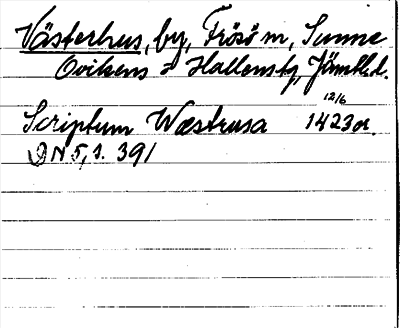 Västerhus, by, Frösö sn, Sunne
Ovikens o Hallens tg, Jämtl.l.
12/6
Scriptum Wæstrusa 1423 or.
DN 5, s. 391